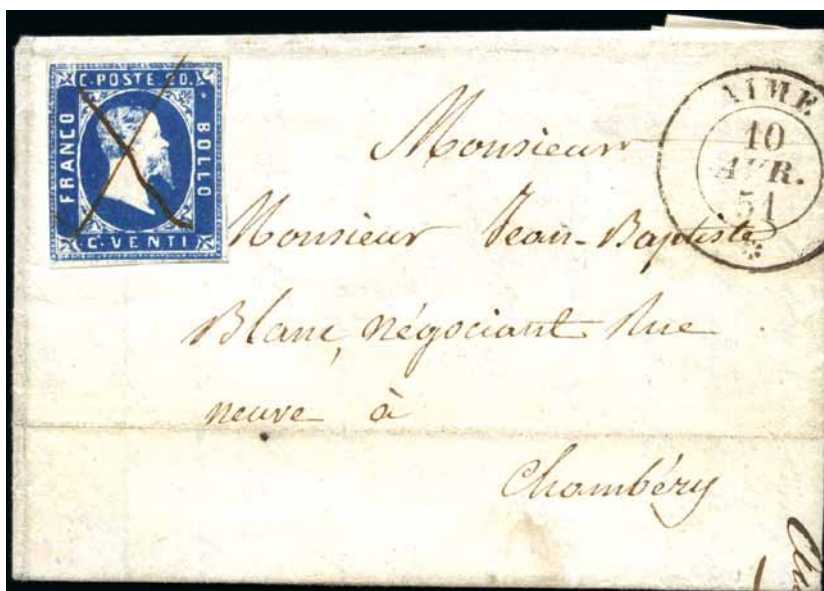 C·POSTE 20.
FRANCO
BOLLO
C·VENTI
AIME
10
AVR.
51
Monsieur
Monsieur Jean-Baptiste
Blanc, négociant Rue
neuve à
Chambéry